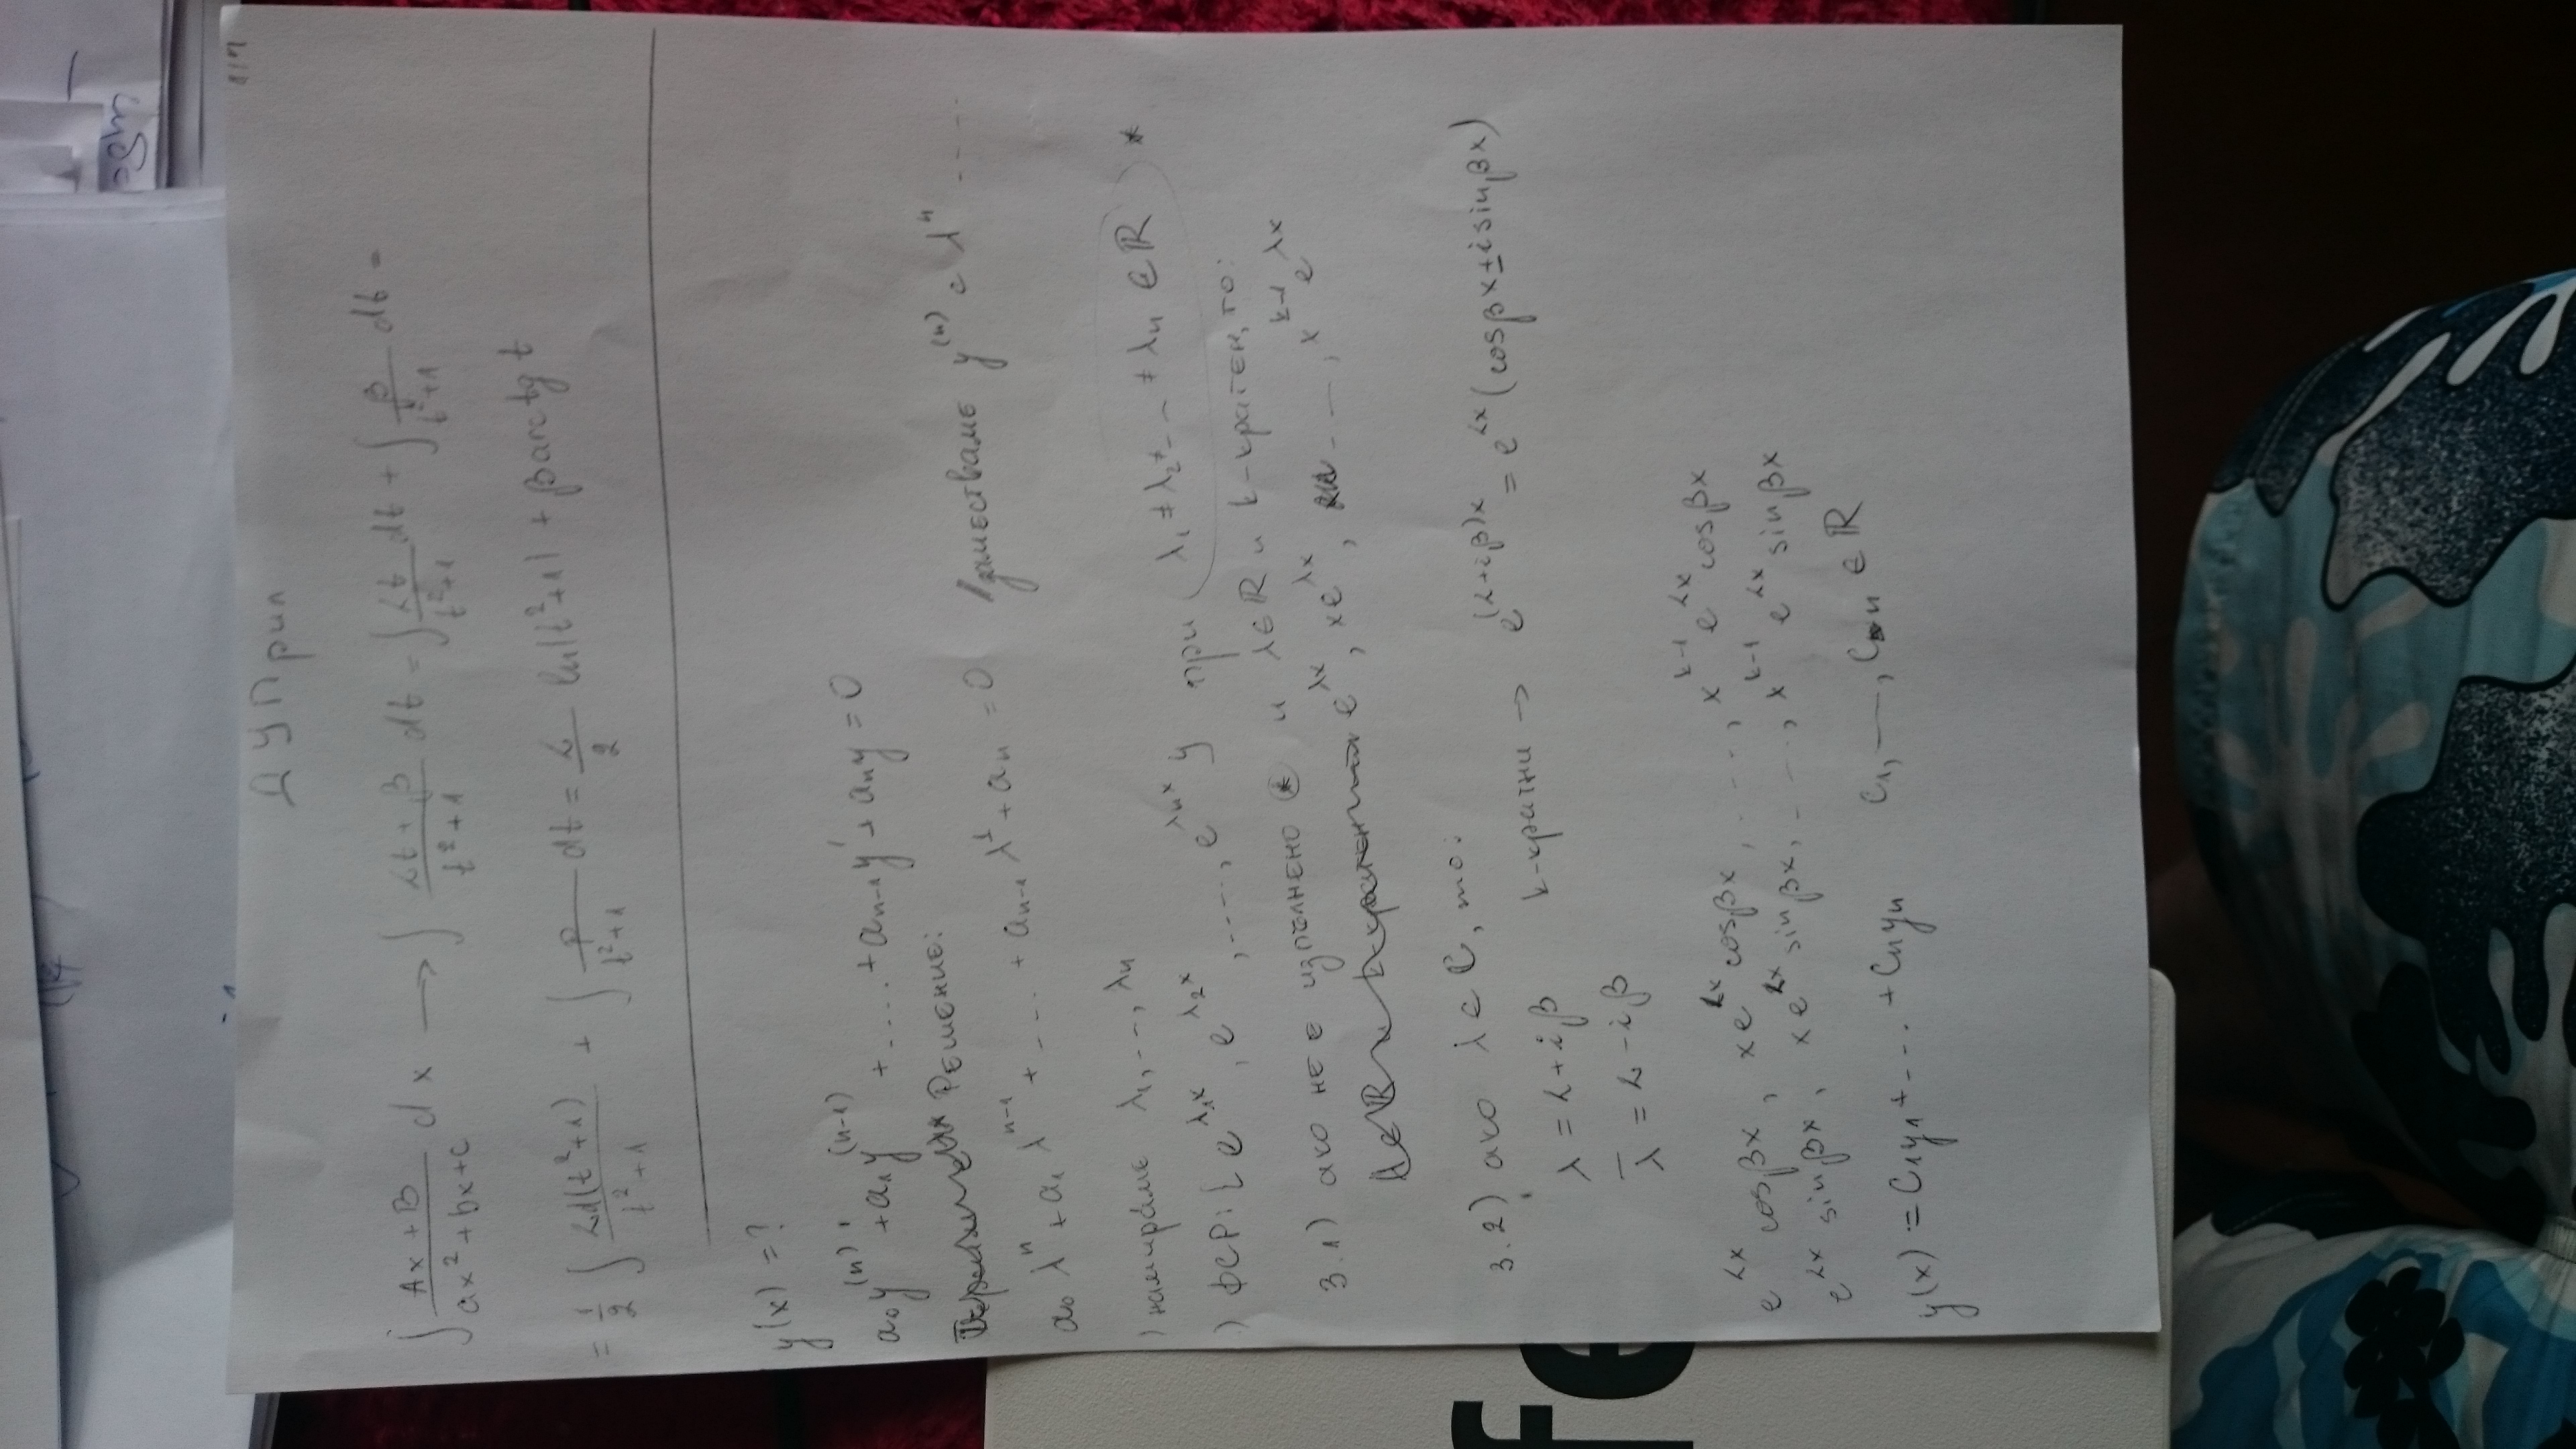 ДУПрил
∫ (Ax+B)/(ax²+bx+c) dx → ∫ (αt+β)/(t²+1) dt = ∫ αt/(t²+1) dt + ∫ β/(t²+1) dt =
= 1/2 ∫ αd(t²+1)/(t²+1) + ∫ β/(t²+1) dt = α/2 ln|t²+1| + β arctg t
y(x) = ?
a₀y⁽ⁿ⁾ + a₁y⁽ⁿ⁻¹⁾ + .... + aₙ₋₁y' + aₙy = 0
Решение:
a₀λⁿ + a₁λⁿ⁻¹ + .... + aₙ₋₁λ¹ + aₙ = 0 / заместваме y⁽ⁿ⁾ с λⁿ .....
) намираме λ₁,...,λₙ
) ФСР: {e^λ₁x, e^λ₂x, ...., e^λₙx} при (λ₁ ≠ λ₂ ≠ ... ≠ λₙ ∈ ℝ) *
3.1) ако не е изпълнено ⊛ и λ∈ℝ и k-кратен, то:
e^λx, xe^λx, ..., x^k-1 e^λx
3.2) ако λ ∈ C, то:
λ = α+iβ
λ̄ = α-iβ
k-кратни → e^(α+iβ)x = e^αx (cosβx ± i sinβx)
e^αx cosβx, xe^αx cosβx, ...., x^k-1 e^αx cosβx
e^αx sinβx, xe^αx sinβx, ...., x^k-1 e^αx sinβx
y(x) = C₁y₁ + .... + Cₙyₙ C₁, —, Cₙ ∈ ℝ
fe